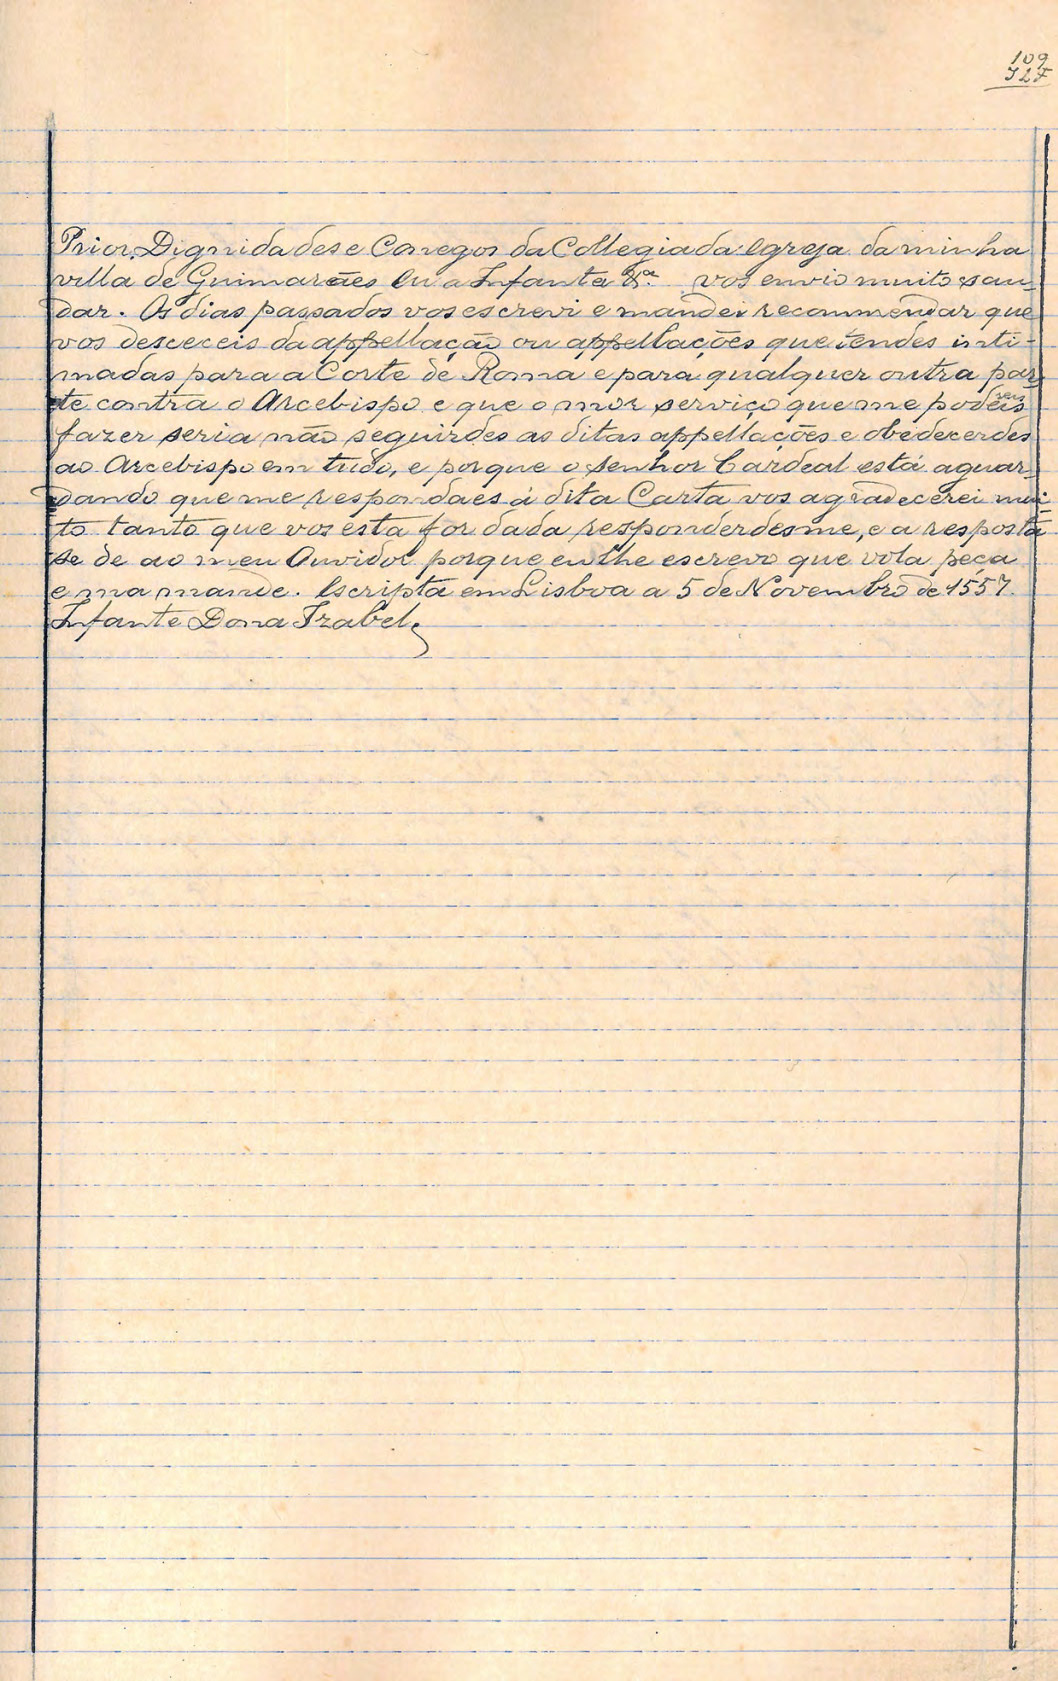 109
727
Prior, Dignidades e Conegos da Collegiada Igreja da minha
villa de Guimarães Eu a Infante &.ª vos envio muito sau-
dar. Os dias passados vos escrevi e mandei recommendar que
vos desceceis da appellação ou appellações que tendes inti-
madas para a Corte de Roma e para qualquer outra par-
te contra o Arcebispo e que o mor serviço que me podeis
fazer seria não seguirdes as ditas appellações e obedecerdes
ao Arcebispo em tudo, e porque o Senhor Cardeal está aguar-
dando que me respondaes á dita Carta vos agradecerei mui-
to tanto que vos esta for dada responderdesme, e a resposta
se dê ao meu Ouvidor porque eu lhe escrevo que vola peça
e ma mande. Escripta em Lisboa a 5 de Novembro de 1557.
Infante Dona Izabel